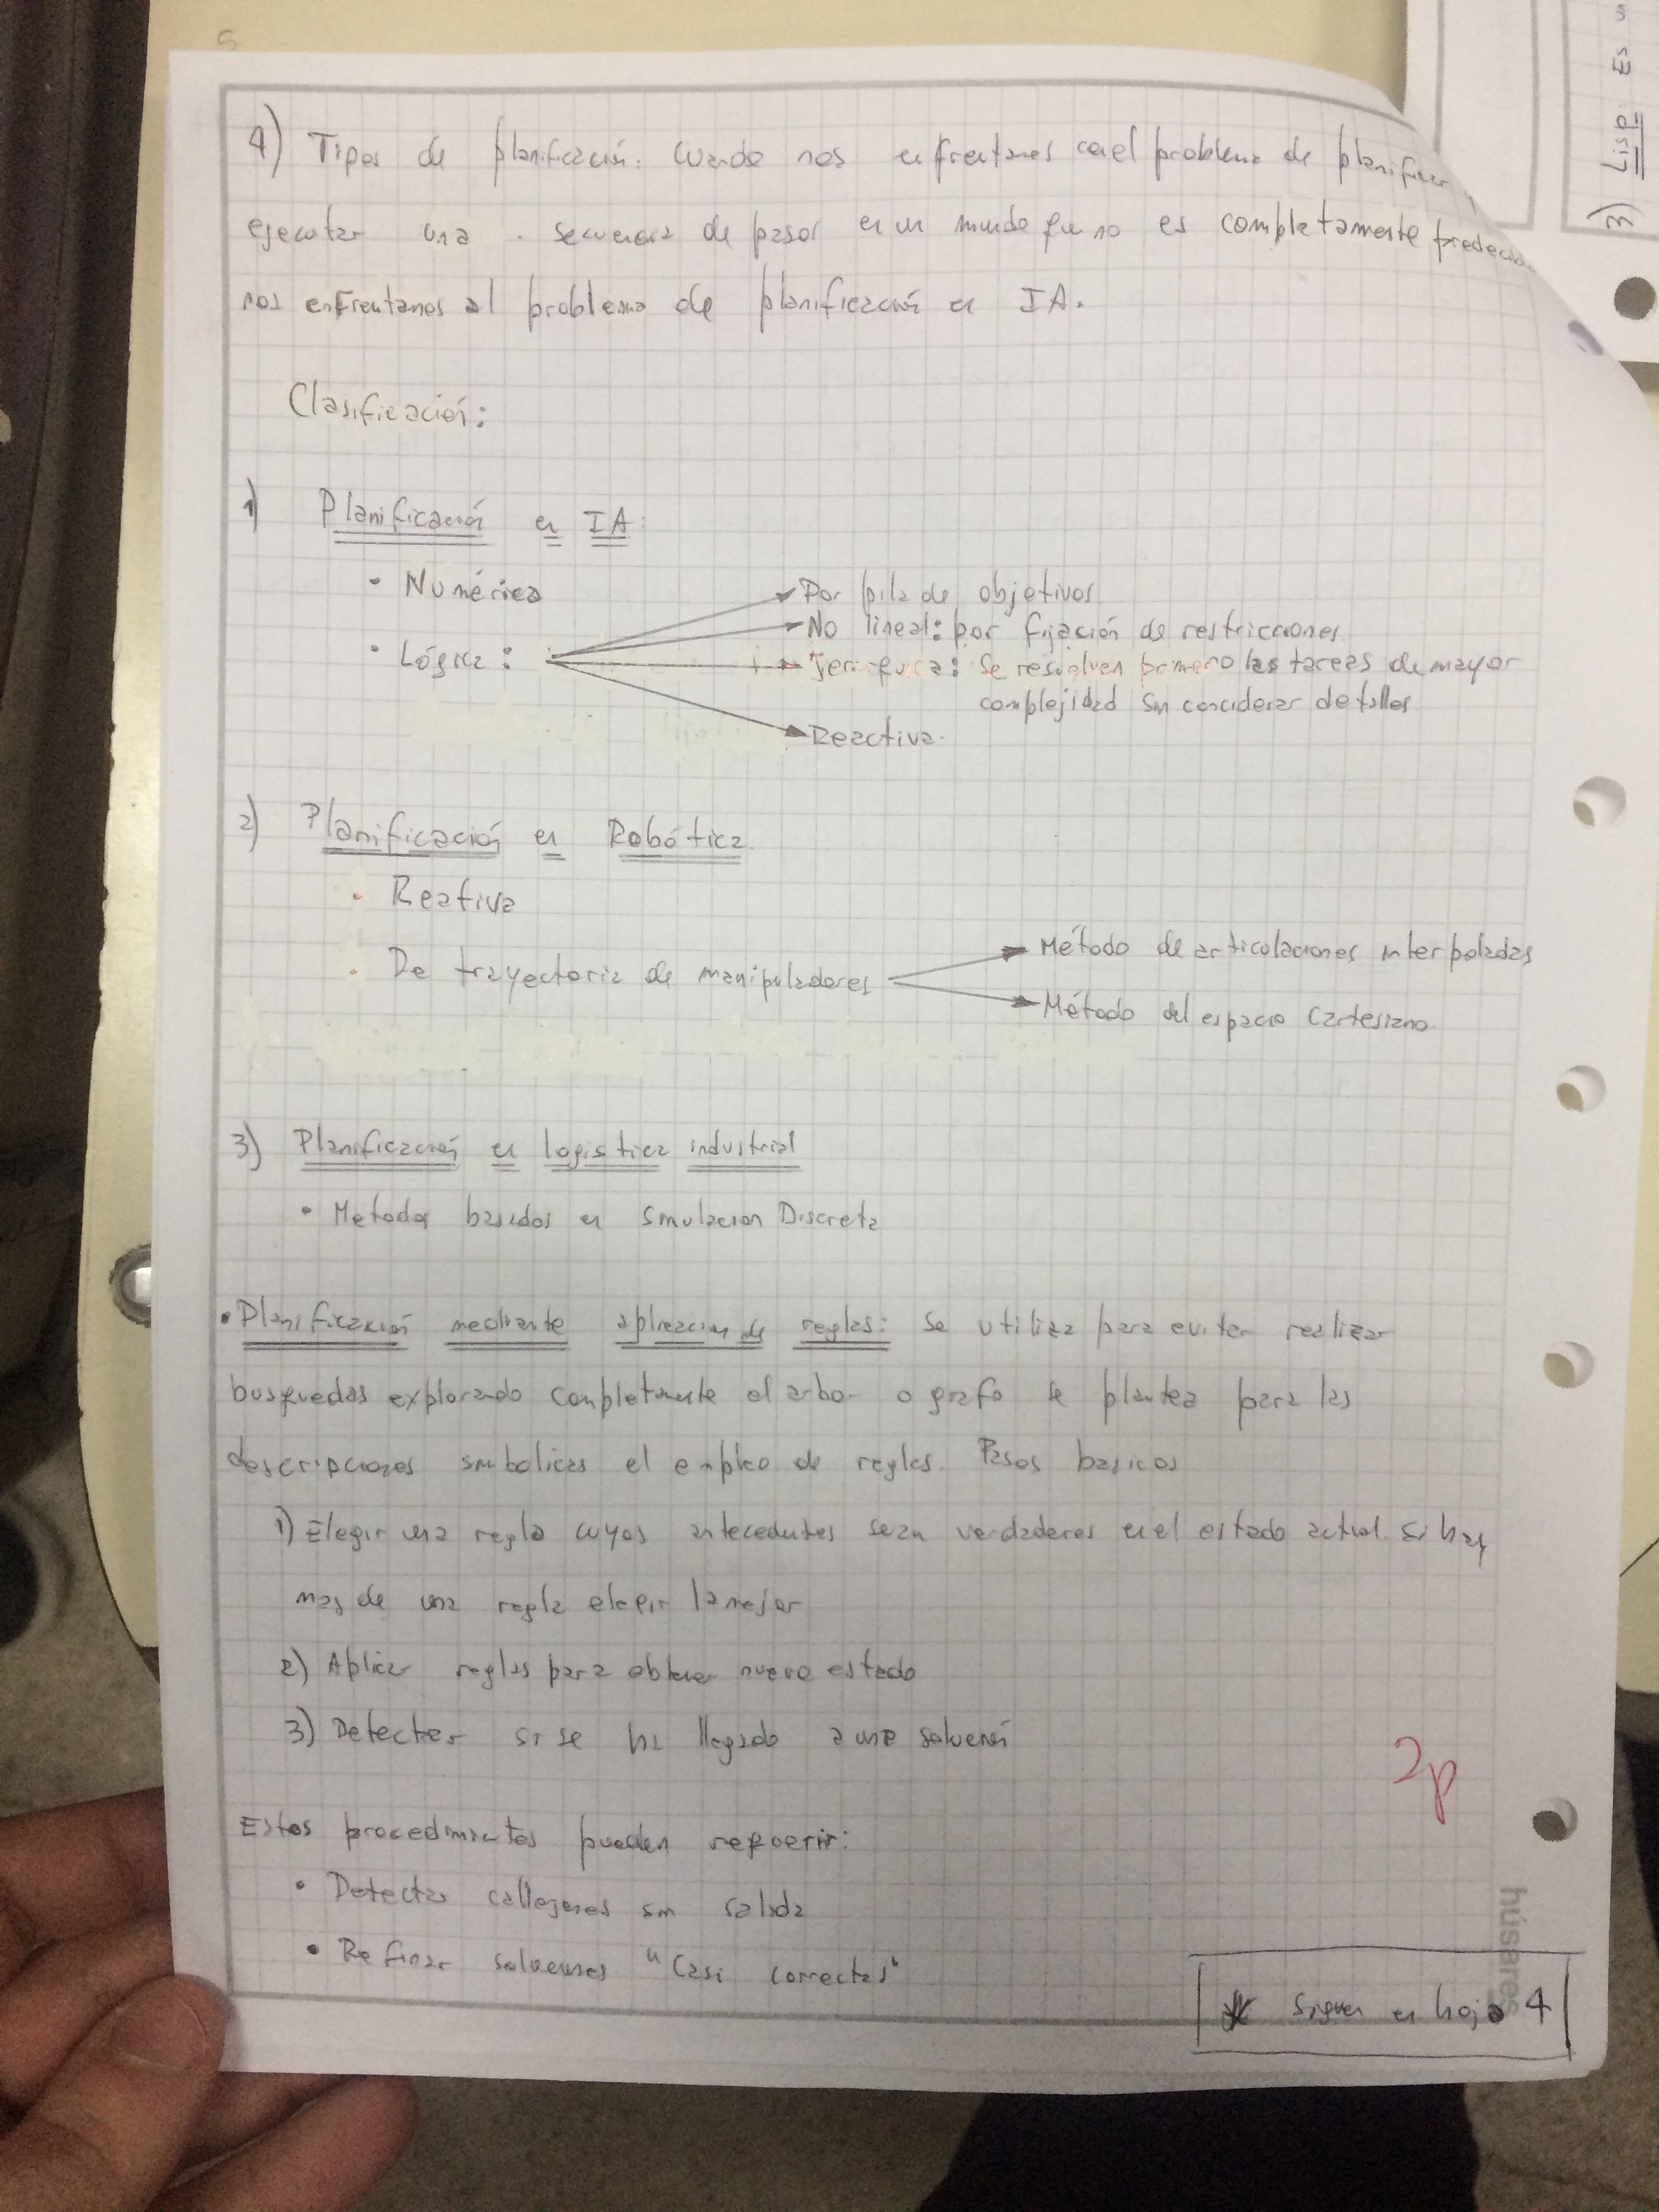 4) Tipos de planificación: Cuando nos enfrentamos con el problema de planificar
ejecutar una secuencia de pasos en un mundo que no es completamente
nos enfrentamos al problema de planificación en IA.
Clasificación:
1) Planificación en IA:
• Numérica
• Lógica:
Por pila de objetivos.
No lineal: por fijación de restricciones
Jerarquica: Se resuelven primero las tareas de mayor
complejidad sin conciderar detalles
Reactiva.
2) Planificación en Robótica.
• Reativa
• De trayectoria de manipuladores
Método de articulaciones interpoladas
Método del espacio Cartesiano
3) Planificación en logistica industrial
• Metodos basados en Simulacion Discreta
• Planificación mediante aplicacion de reglas: Se utiliza para evitar realizar
busquedas explorando completamente el arbol o grafo se plantea para las
descripciones simbolicas el empleo de reglas. Pasos basicos
1) Elegir una regla cuyos antecedentes sean verdaderos en el estado actual. Si hay
mas de una regla elegir la mejor
2) Aplicar reglas para obtener nuevo estado
3) Detectar si se ha llegado a una solución
2p
Estos procedimientos pueden requerir:
• Detectar callejones sin salida
• Refinar soluciones "Casi correctas"
húsares
* Sigue en hoja 4
3) Lisp: Es